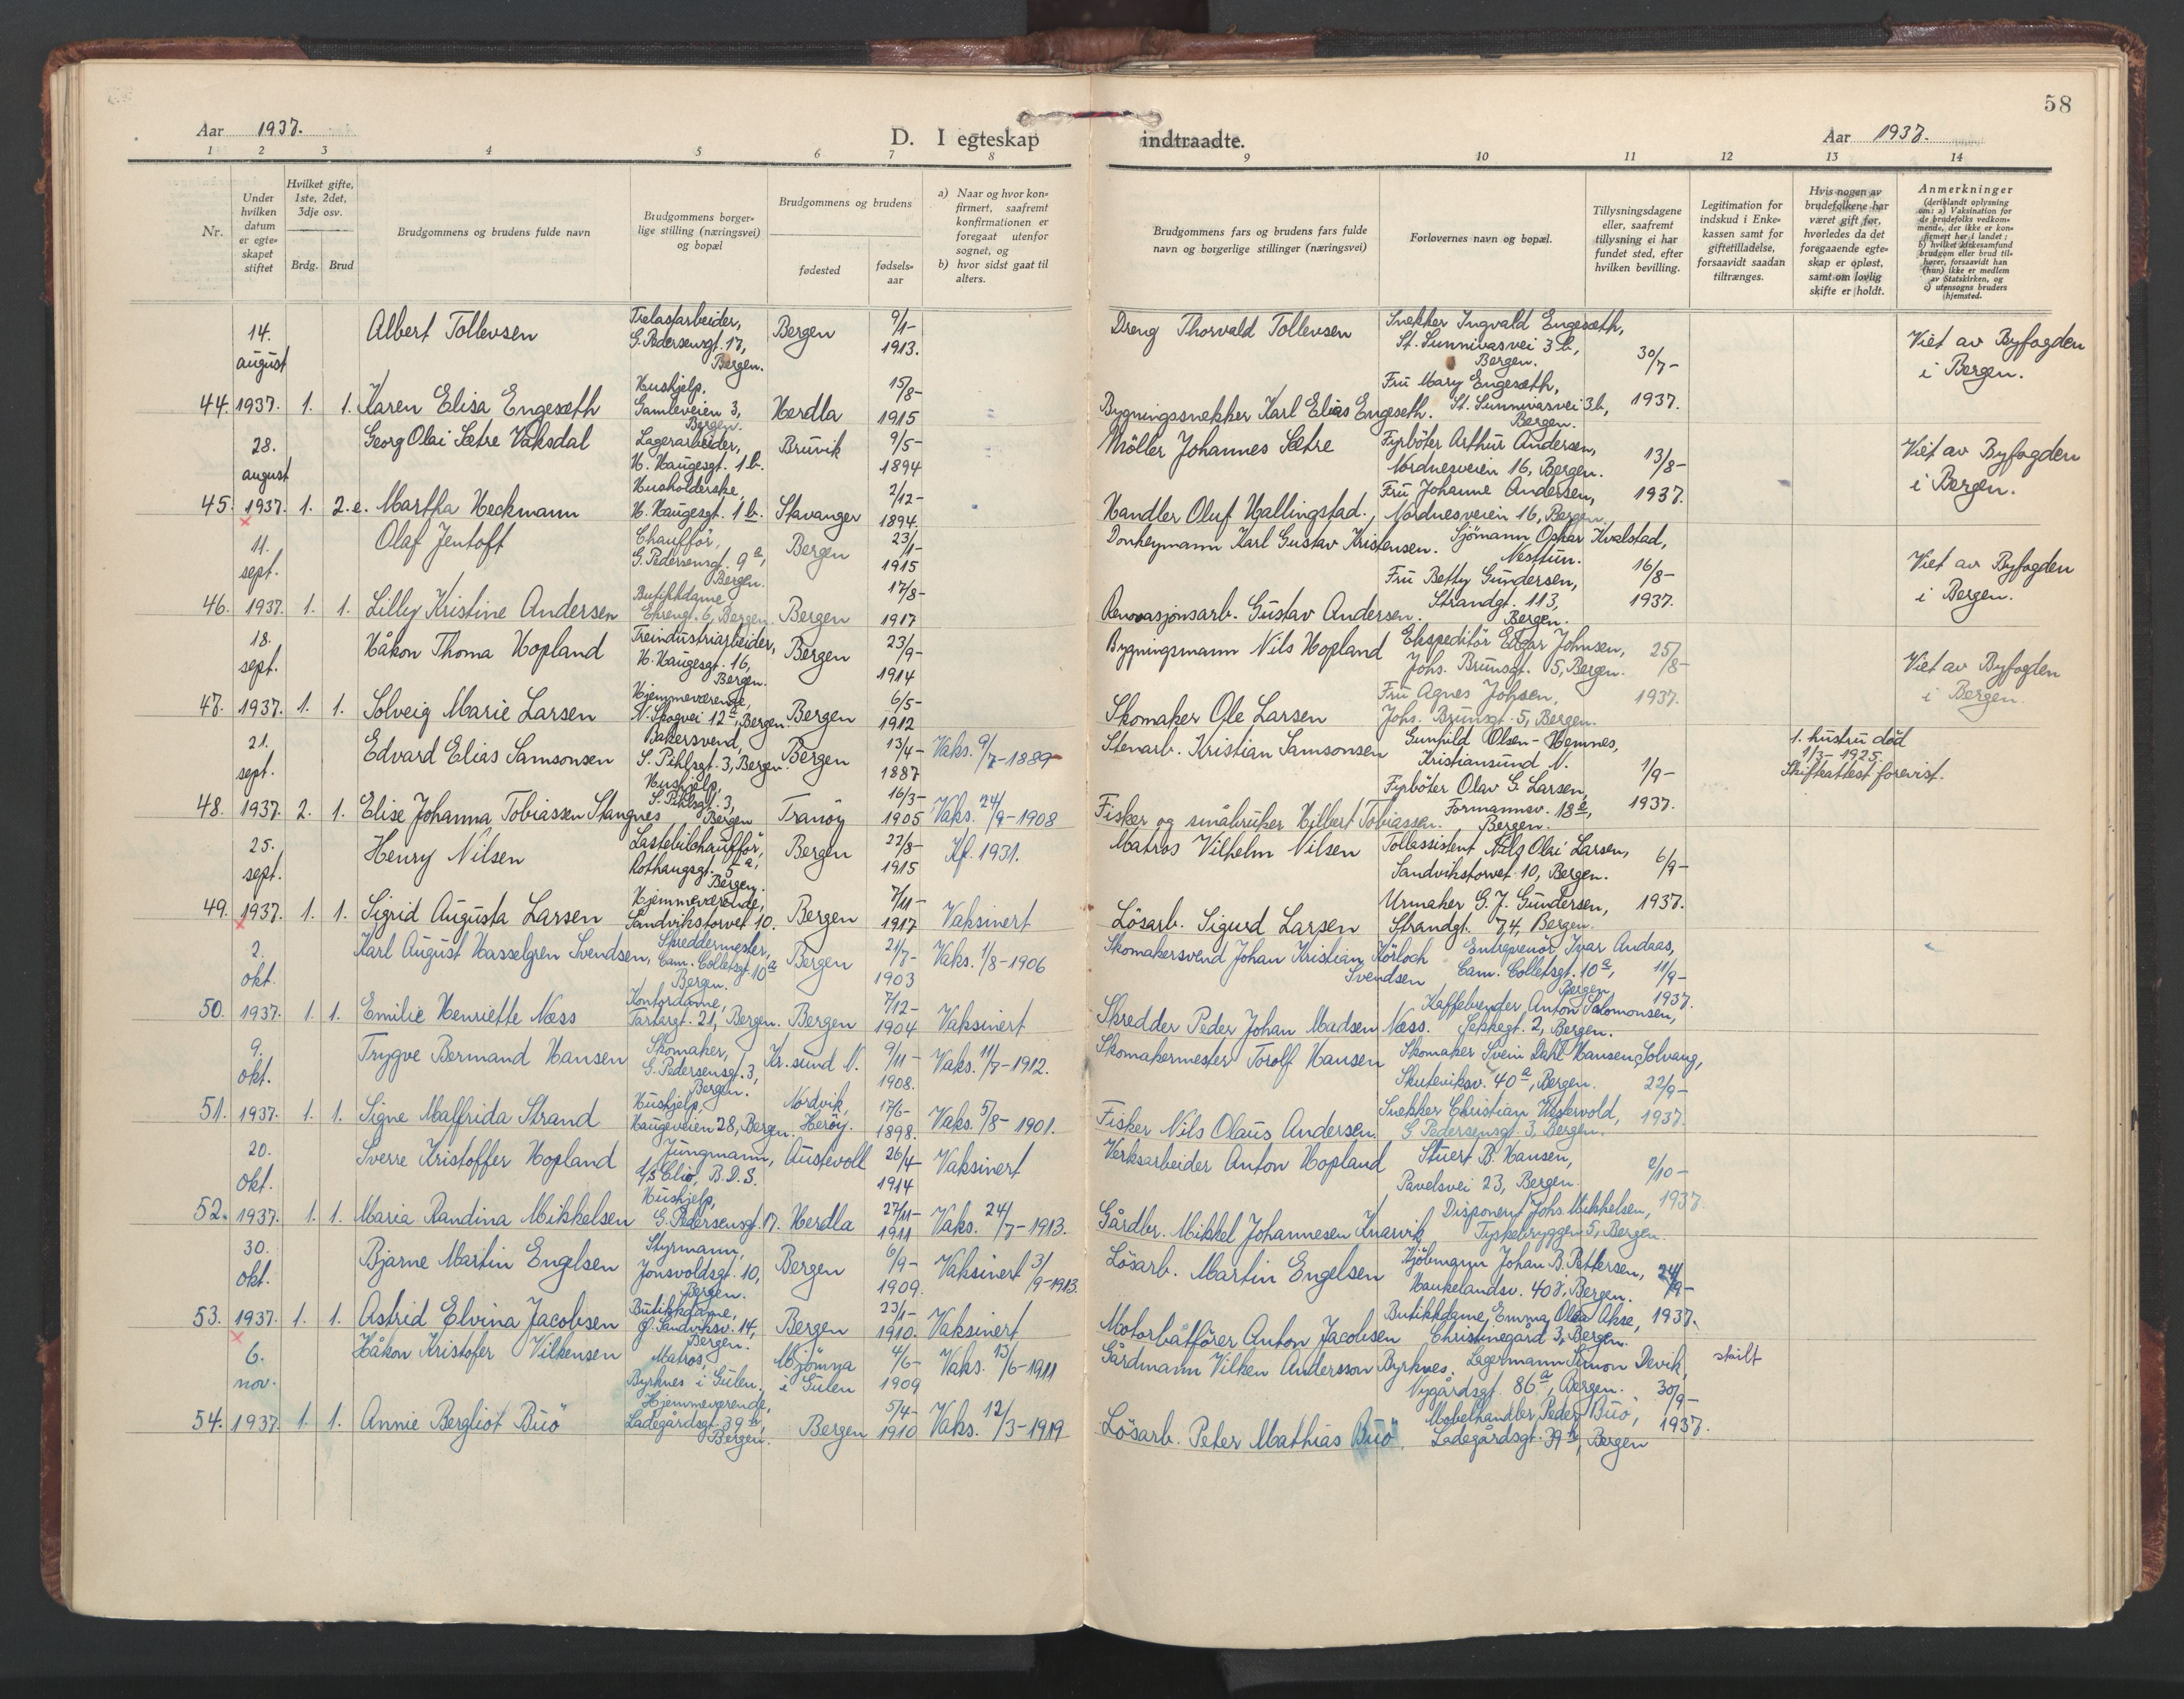 58
Aar 1937.
D. I egteskap indtraadte.
Aar 1937.
1 2 3 4 5 6 7 8 9 10 11 12 13 14
Nr.
Under hvilken datum er egteskapet stiftet
Hvilket gifte, 1ste, 2det, 3dje osv.
Brdg. Brud
Brudgommens og brudens fulde navn
Brudgommens borgerlige stilling (næringsvei) og bopæl
Brudgommens og brudens
fødested
fødselsaar
a) Naar og hvor konfirmert, saafremt konfirmationen er foregaat utenfor sognet, og
b) hvor sidst gaat til alters.
Brudgommens fars og brudens fars fulde navn og borgerlige stillinger (næringsvei)
Forlovernes navn og bopæl.
Tillysningsdagene eller, saafremt tillysning ei har fundet sted, efter hvilken bevilling.
Legitimation for indskud i Enkekassen samt for giftetilladelse, forsaavidt saadan tiltrænges.
Hvis nogen av brudefolkene har været gift før, hvorledes da det foregaaende egteskap er opløst, samt om lovlig skifte er holdt.
Anmerkninger
(deriblandt oplysning om: a) Vaksination for de brudefolks vedkommende, der ikke er konfirmert her i landet; b) hvilket kirkesamfund brudgom eller brud tilhører, forsaavidt han (hun) ikke er medlem av Statskirken, og c) utensogns bruders hjemsted.
44. 14. august 1937. 1. 1.
Albert Tollevsen
Trelastarbeider, G. Pedersensgt. 17, Bergen.
Bergen 9/1- 1913.
Dreng Thorvald Tollevsen
Snekker Ingvald Engeseth, St. Sunnivasvei 3 b, Bergen.
30/7- 1937.
Viet av Byfogden i Bergen.
Karen Elisa Engeseth
Hushjelp. Gamleveien 3, Bergen.
Herdla 15/8- 1915
Bygningssnekker Karl Elias Engeseth.
Fru Mary Engeseth, St. Sunnivasvei 3b, Bergen.
45. 28. august 1937. 1. 2.e.
Georg Olai Sætre Vaksdal
Lagerarbeider, H. Haugesgt. 1 b.
Bruvik 9/5- 1894
Möller Johannes Sætre
Fyrböter Arthur Andersen, Nordnesveien 16, Bergen.
13/8- 1937.
Viet av Byfogden i Bergen.
Martha Heckmann
Husholderske, H. Haugesgt. 1 b.
Stavanger 2/12- 1894.
Handler Oluf Hallingstad.
Fru Johanne Andersen, Nordnesveien 16, Bergen.
46. 11. sept. 1937. 1. 1.
Olaf Jentoft
Chaufför, G. Pedersensgt. 9 a, Bergen.
Bergen 23/1- 1915
Donkeymann Karl Gustav Kristensen.
Sjömann Oskar Kvalstad, Nesttun.
16/8- 1937.
Viet av Byfogden i Bergen.
Lilly Kristine Andersen
Butikkdame, Ehrengt. 6, Bergen.
Bergen 17/8- 1917
Renovasjonsarb. Gustav Andersen.
Fru Betty Gundersen, Strandgt. 113, Bergen.
47. 18. sept. 1937. 1. 1.
Håkon Thoma Hopland
Treindustriarbeider, H. Haugesgt. 16, Bergen.
Bergen 23/9- 1914
Bygningsmann Nils Hopland
Ekspeditör Edgar Johnsen, Johs. Brunsgt. 5, Bergen.
25/8- 1937.
Viet av Byfogden i Bergen.
Solveig Marie Larsen
Hjemmeværende, N. Skogvei 12 a, Bergen
Bergen 6/5- 1912
Skomaker Ole Larsen
Fru Agnes Johsen, Johs. Brunsgt. 5, Bergen.
48. 21. sept. 1937. 2. 1.
Edvard Elias Samsonsen
Bakersvend, S. Pihlsgt. 3, Bergen.
Bergen 13/4- 1887
Vaks. 9/7-1889
Stenarb. Kristian Samsonsen
Gunhild Olsen-Hemnes, Kristiansund N.
1/9- 1937.
1. hustru död 1/3-1925. Skifteattest forevist.
Elise Johanna Tobiassen Stangnes
Hushjelp, S. Pihlsgt. 3, Bergen
Tranöy 16/3- 1905
Vaks. 24/9-1908
Fisker og småbruker Hilbert Tobiassen.
Fyrböter Olav G. Larsen, Formannsv. 18 a, Bergen.
49. 25. sept. 1937. 1. 1.
Henry Nilsen
Lastebilchaufför, Rothaugsgt. 5 a, Bergen.
Bergen 27/8- 1915
Kf. 1931.
Matros Vilhelm Nilsen
Tollassistent Nils Olai Larsen, Sandvikstorvet 10, Bergen.
6/9- 1937.
Sigrid Augusta Larsen
Hjemmeværende, Sandvikstorvet 10.
Bergen 7/11- 1917
Vaksinert
Lösarb. Sigurd Larsen
Urmaker G. J. Gundersen, Strandgt. 74, Bergen.
50. 2. okt. 1937. 1. 1.
Karl August Hasselgren Svendsen,
Skreddermester, Cam. Colletsgt. 10 a Bergen.
Bergen 21/7- 1903
Vaks. 1/8-1906
Skomakersvend Johan Kristian Körloch Svendsen
Entreprenör Ivar Andaas, Cam. Colletsgt. 10 a, Bergen
11/9- 1937.
Emilie Henriette Næss
Kontordame, Tartargt. 21, Bergen.
Bergen 7/12- 1904
Vaksinert
Skredder Peder Johan Madsen Næss.
Kaffebrender Anton Salomonsen, Sekkegt. 2, Bergen.
51. 9. okt. 1937. 1. 1.
Trygve Bermand Hansen
Skomaker, G. Pedersensgt. 3, Bergen.
Kr. sund N. 9/11- 1908.
Vaks. 11/7-1912.
Skomakermester Torolf Hansen
Skomaker Svein Dahl Hansen, Solvang, Skuteviksv. 40 a, Bergen.
22/9- 1937.
Signe Malfrida Strand
Hushjelp, Haugeveien 28, Bergen.
Nordvik, Heröy. 17/6- 1898.
Vaks. 5/8-1901.
Fisker Nils Olaus Andersen.
Snekker Christian Westervold, G. Pedersensgt. 3, Bergen.
52. 20. okt. 1937. 1. 1.
Sverre Kristoffer Hopland
Jungmann, d/s Clio, B.D.S.
Austevoll 26/4- 1914
Vaksinert
Verksarbeider Anton Hopland
Stuert B. Hansen, Pavelsvei 23, Bergen.
2/10- 1937.
Maria Randina Mikkelsen
Hushjelp, G. Pedersensgt. 17.
Herdla 27/11- 1911
Vaks. 24/7-1913.
Gårdbr. Mikkel Johannesen Knarvik
Disponent Johs. Mikkelsen, Tyskebryggen 5, Bergen.
53. 30. okt. 1937. 1. 1.
Bjarne Martin Engelsen
Styrmann, Jonsvoldsgt. 10, Bergen.
Bergen 6/9- 1909.
Vaksinert 3/9-1913.
Lösarb. Martin Engelsen
Kjöbmann Johan B. Pettersen, Haukelandsv. 40 , Bergen.
24/9- 1937.
Astrid Elvina Jacobsen
Butikkdame, Ø. Sandviksv. 14, Bergen.
Bergen 23/1- 1910.
Vaksinert
Motorbåtförer Anton Jacobsen
Butikkdame Emma Olea Akse, Christinegård 3, Bergen.
54. 6. nov. 1937. 1. 1.
Håkon Kristofer Vilkensen
Matros, Byrknes i Gulen.
Mjömna i Gulen 4/6- 1909
Vaks. 13/6-1911
Gårdmann Vilken Andersson Byrknes.
Lagermann Simon Devik, Nygårdsgt. 86 a, Bergen.
30/9- 1937.
skilt
Annie Bergliot Buö
Hjemmeværende, Ladegårdsgt. 39 b, Bergen.
Bergen 5/4- 1910
Vaks. 12/3-1919
Lösarb. Peter Mathias Buö.
Möbelhandler Peder Buö, Ladegårdsgt. 39 b, Bergen